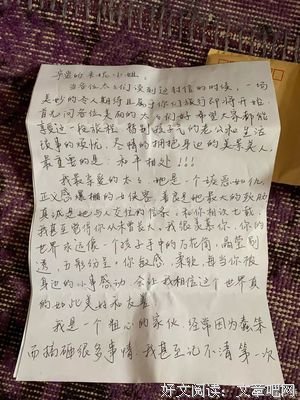 亲爱的木木小姐:
当各位太太们读到这封信的时候，一场
美妙的令人期待且属于你们旅行即将开始，
首先问各位美丽的太太们好，希望大家都能
享受这一段旅程，抛到孩子气的老公和生活
琐事的烦扰，尽情的拥抱身边的美景美人，
最重要的是:和平相处!!!
我最亲爱的木木，她是一个嫉恶如仇，
正义感爆棚的女侠客，善良是她最大的
真诚是她与人交往的信条，和你相识七载，
我甚至觉得你从未曾长大，我很羡慕你，你的
世界永远像一个孩子手中的万花筒，晶莹剔
透，五彩纷呈。你敏感，柔软，每当你被
身边的小事感动，会让我相信这个世界真
的如此美好和友善
我是一个粗心的家伙，经常因为蠢笨
而搞砸很多事情，我甚至记不清第一次
好文阅读：文章吧网